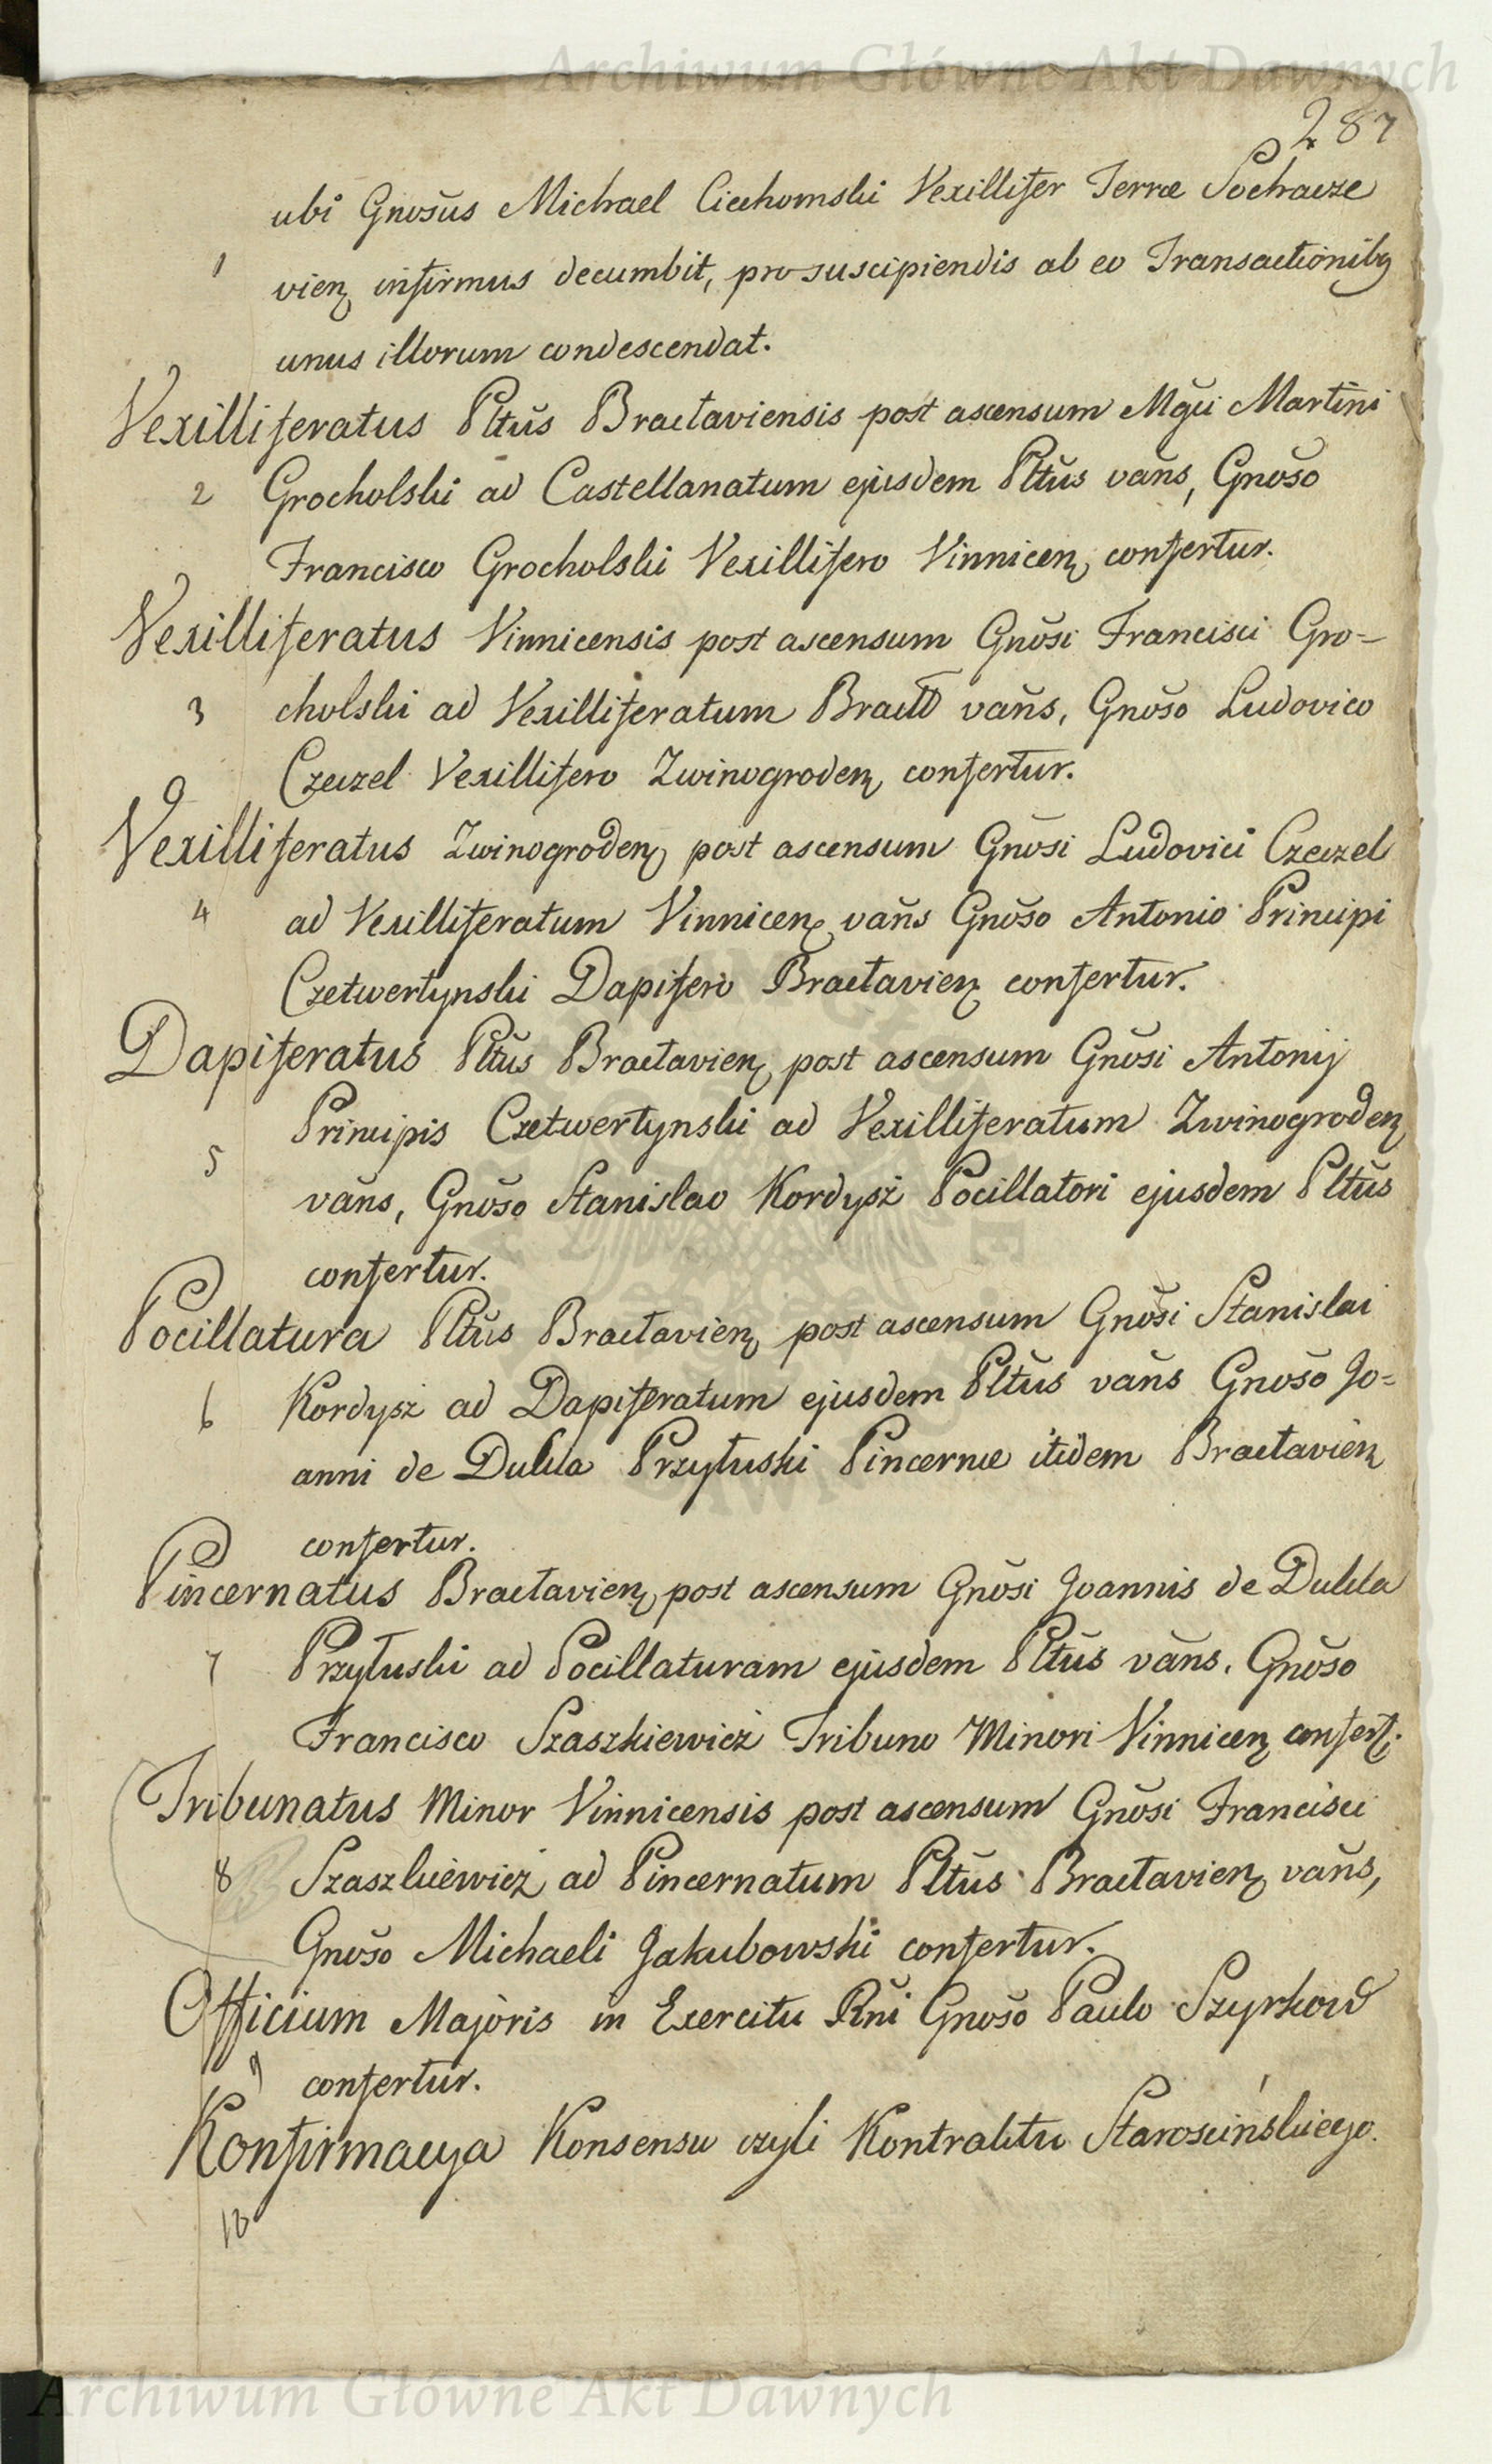 Archiwum Główne Akt Dawnych
287
ubi Gnosus Michael Ciechomski Vexillifer Terræ Sochacze
1
vien̄ infirmus decumbit, pro suscipiendis ab eo Transactionibꝫ
unus illorum condescendat.
Vexilliferatus Pltŭs Braclaviensis post ascensum Mğci Martini
2 Grocholski ad Castellanatum ejusdem Pltŭs vañs, Gnŏso
Francisco Grocholski Vexillifero Vinnicen̄ confertur.
Vexilliferatus Vinnicensis post ascensum Gnŏsi Francisci Gro=
3 cholski ad Vexilliferatum Bracł vañs, Gnŏso Ludovico
Czeczel Vexillifero Zwinogroden̄ confertur.
Vexilliferatus Zwinogroden̄ post ascensum Gnŏsi Ludovici Czeczel
4 ad Vexilliferatum Vinnicen̄ vañs Gnŏso Antonio Principi
Czetwertynski Dapifero Braclavien̄ confertur.
Dapiferatus Pltŭs Braclavien̄ post ascensum Gnŏsi Antonij
Principis Czetwertynski ad Vexilliferatum Zwinogroden̄
5
vañs, Gnŏso Stanislao Kordysż Pocillatori ejusdem Pltŭs
confertur.
Pocillatura Pltŭs Braclavien̄ post ascensum Gnŏsi Stanislai
6 Kordysż ad Dapiferatum ejusdem Pltŭs vañs Gnŏso Jo=
anni de Dukla Przyłuski Pincernæ itidem Braclavien̄
confertur.
Pincernatus Braclavien̄ post ascensum Gnŏsi Joannis de Dukla
7 Przyłuski ad Pocillaturam ejusdem Pltŭs vañs. Gnŏso
Francisco Szaszkiewicż Tribuno Minori Vinnicen̄ confert.
Tribunatus Minor Vinnicensis post ascensum Gnŏsi Francisci
8 Szaszkiewicż ad Pincernatum Pltŭs Braclavien̄ vañs,
Gnŏso Michaeli Jakubowski confertur.
Officium Majoris in Exercitu Rñi Gnŏso Paulo Szyrkow
9 confertur.
Konfirmacya Konsensu czyli Kontraktu Staroscińskiego.
10
Archiwum Główne Akt Dawnych